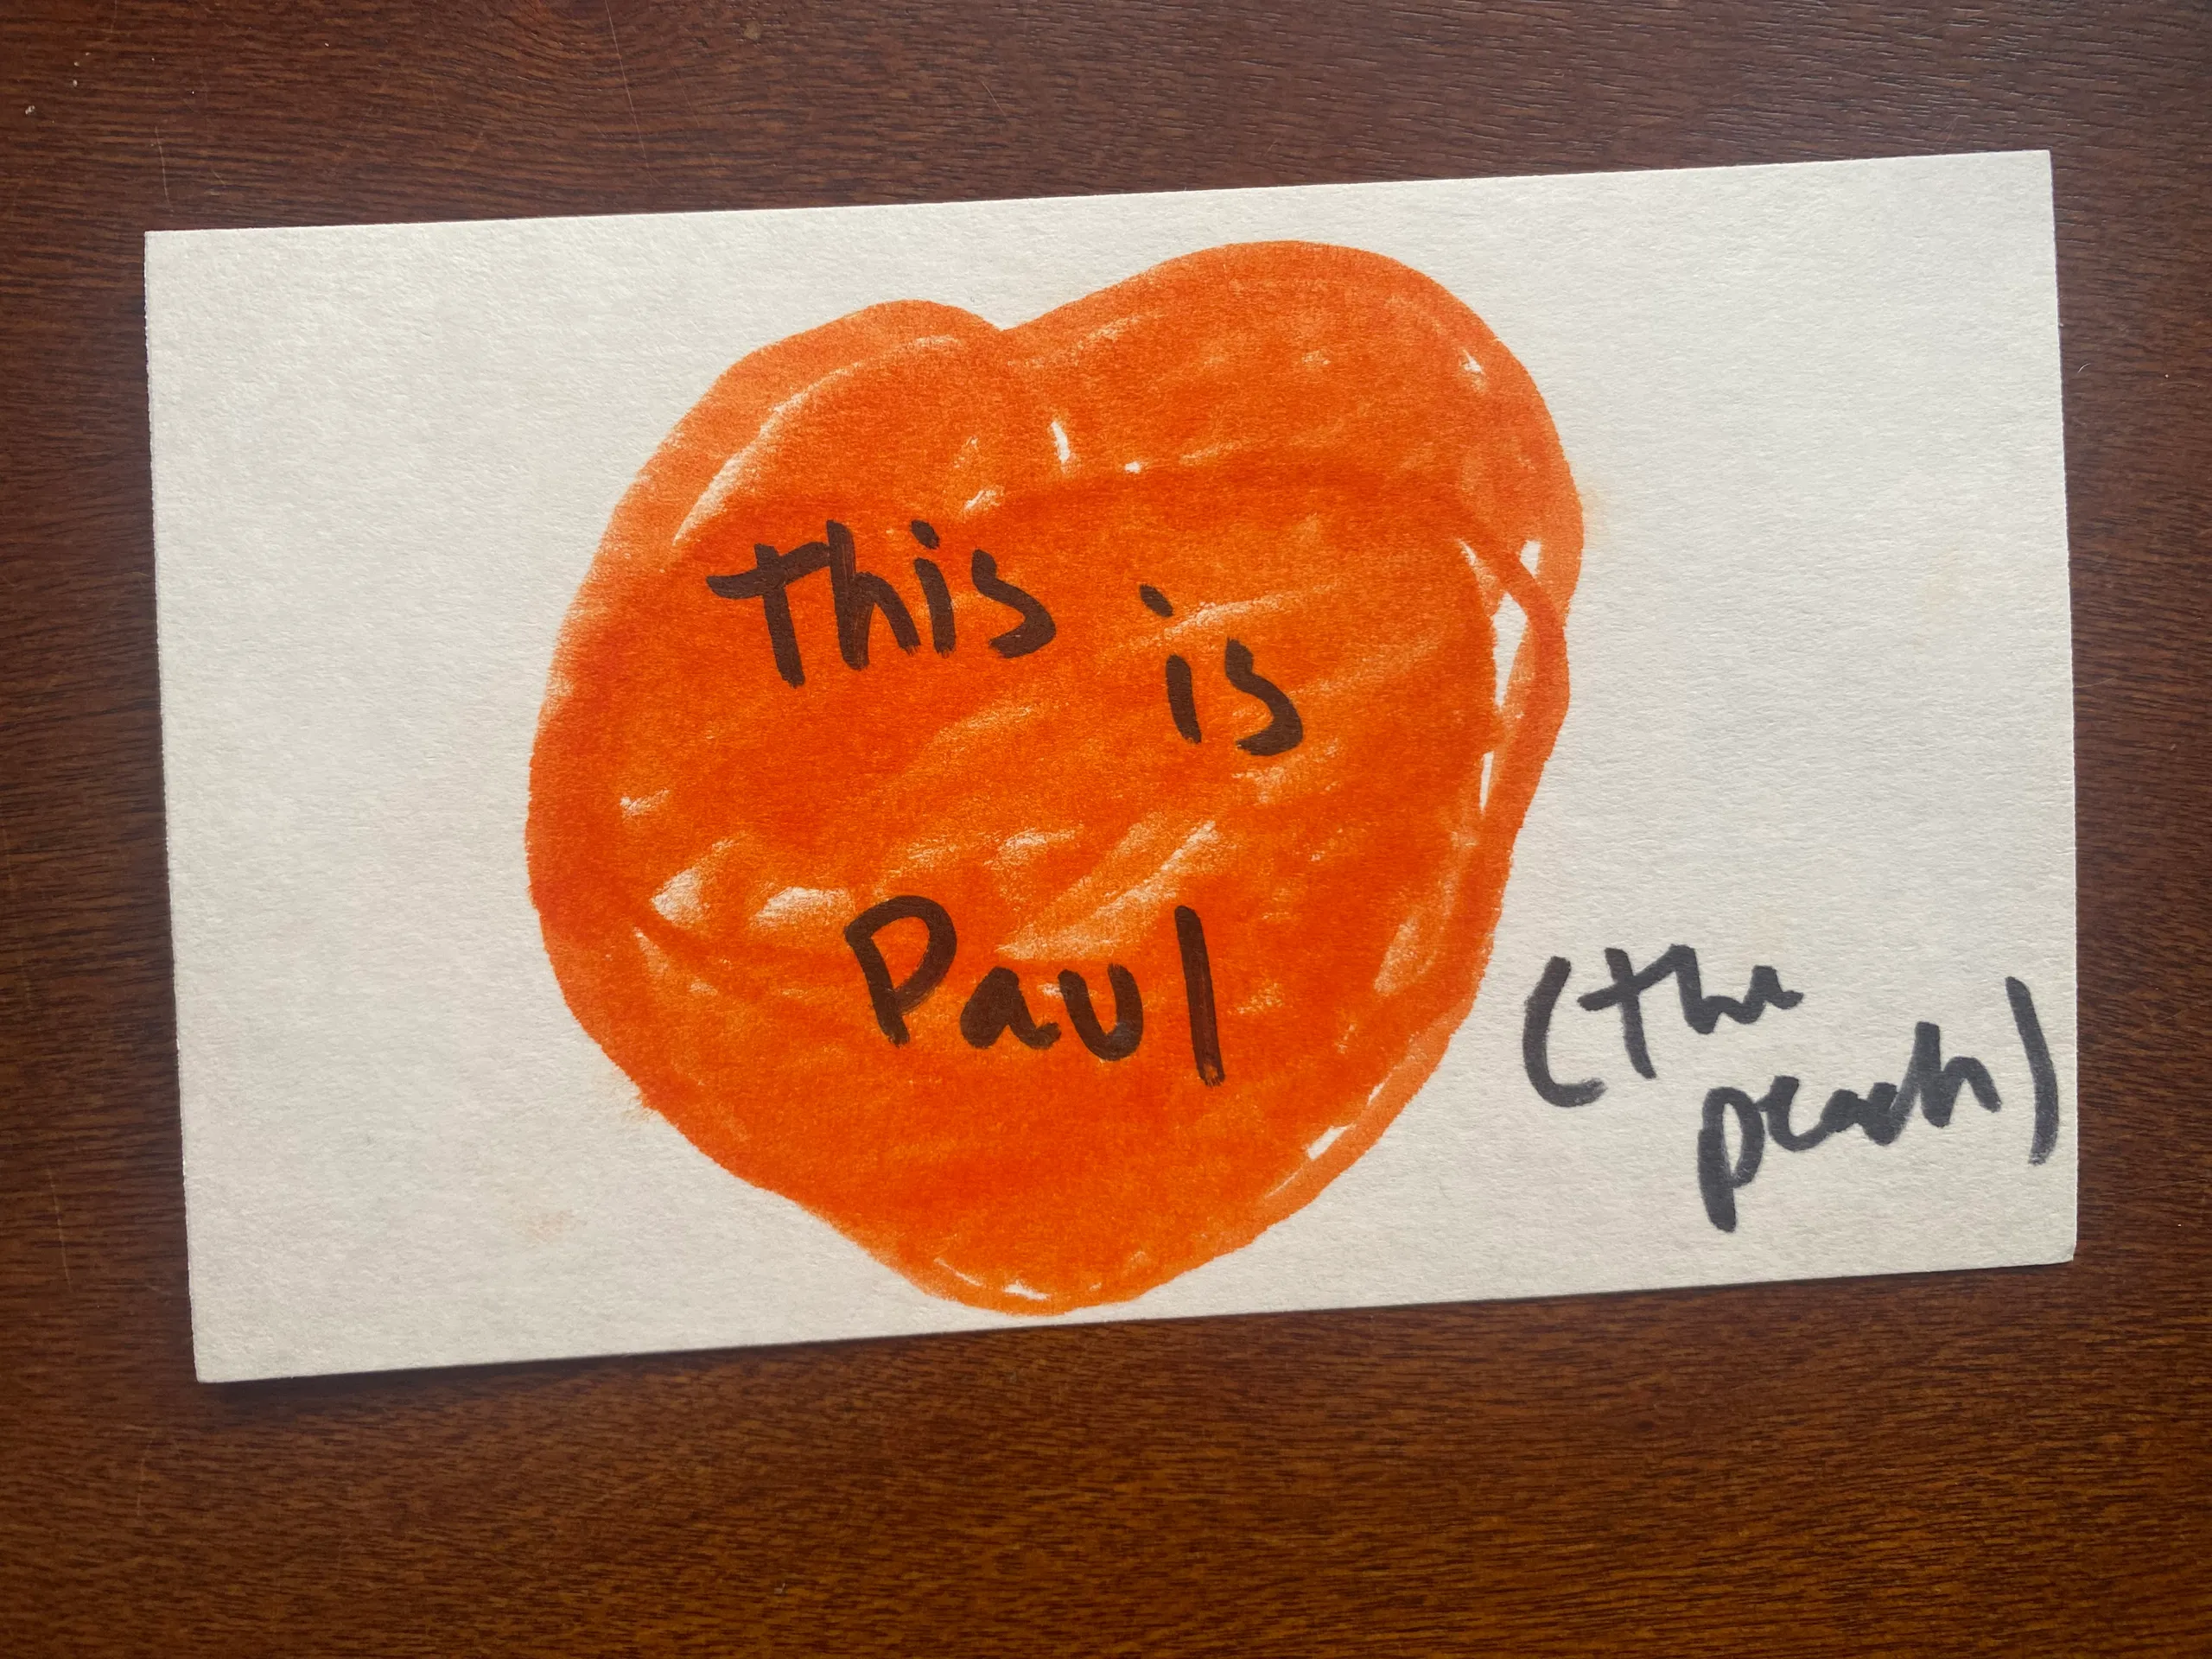 This is
Paul
(the
peach)